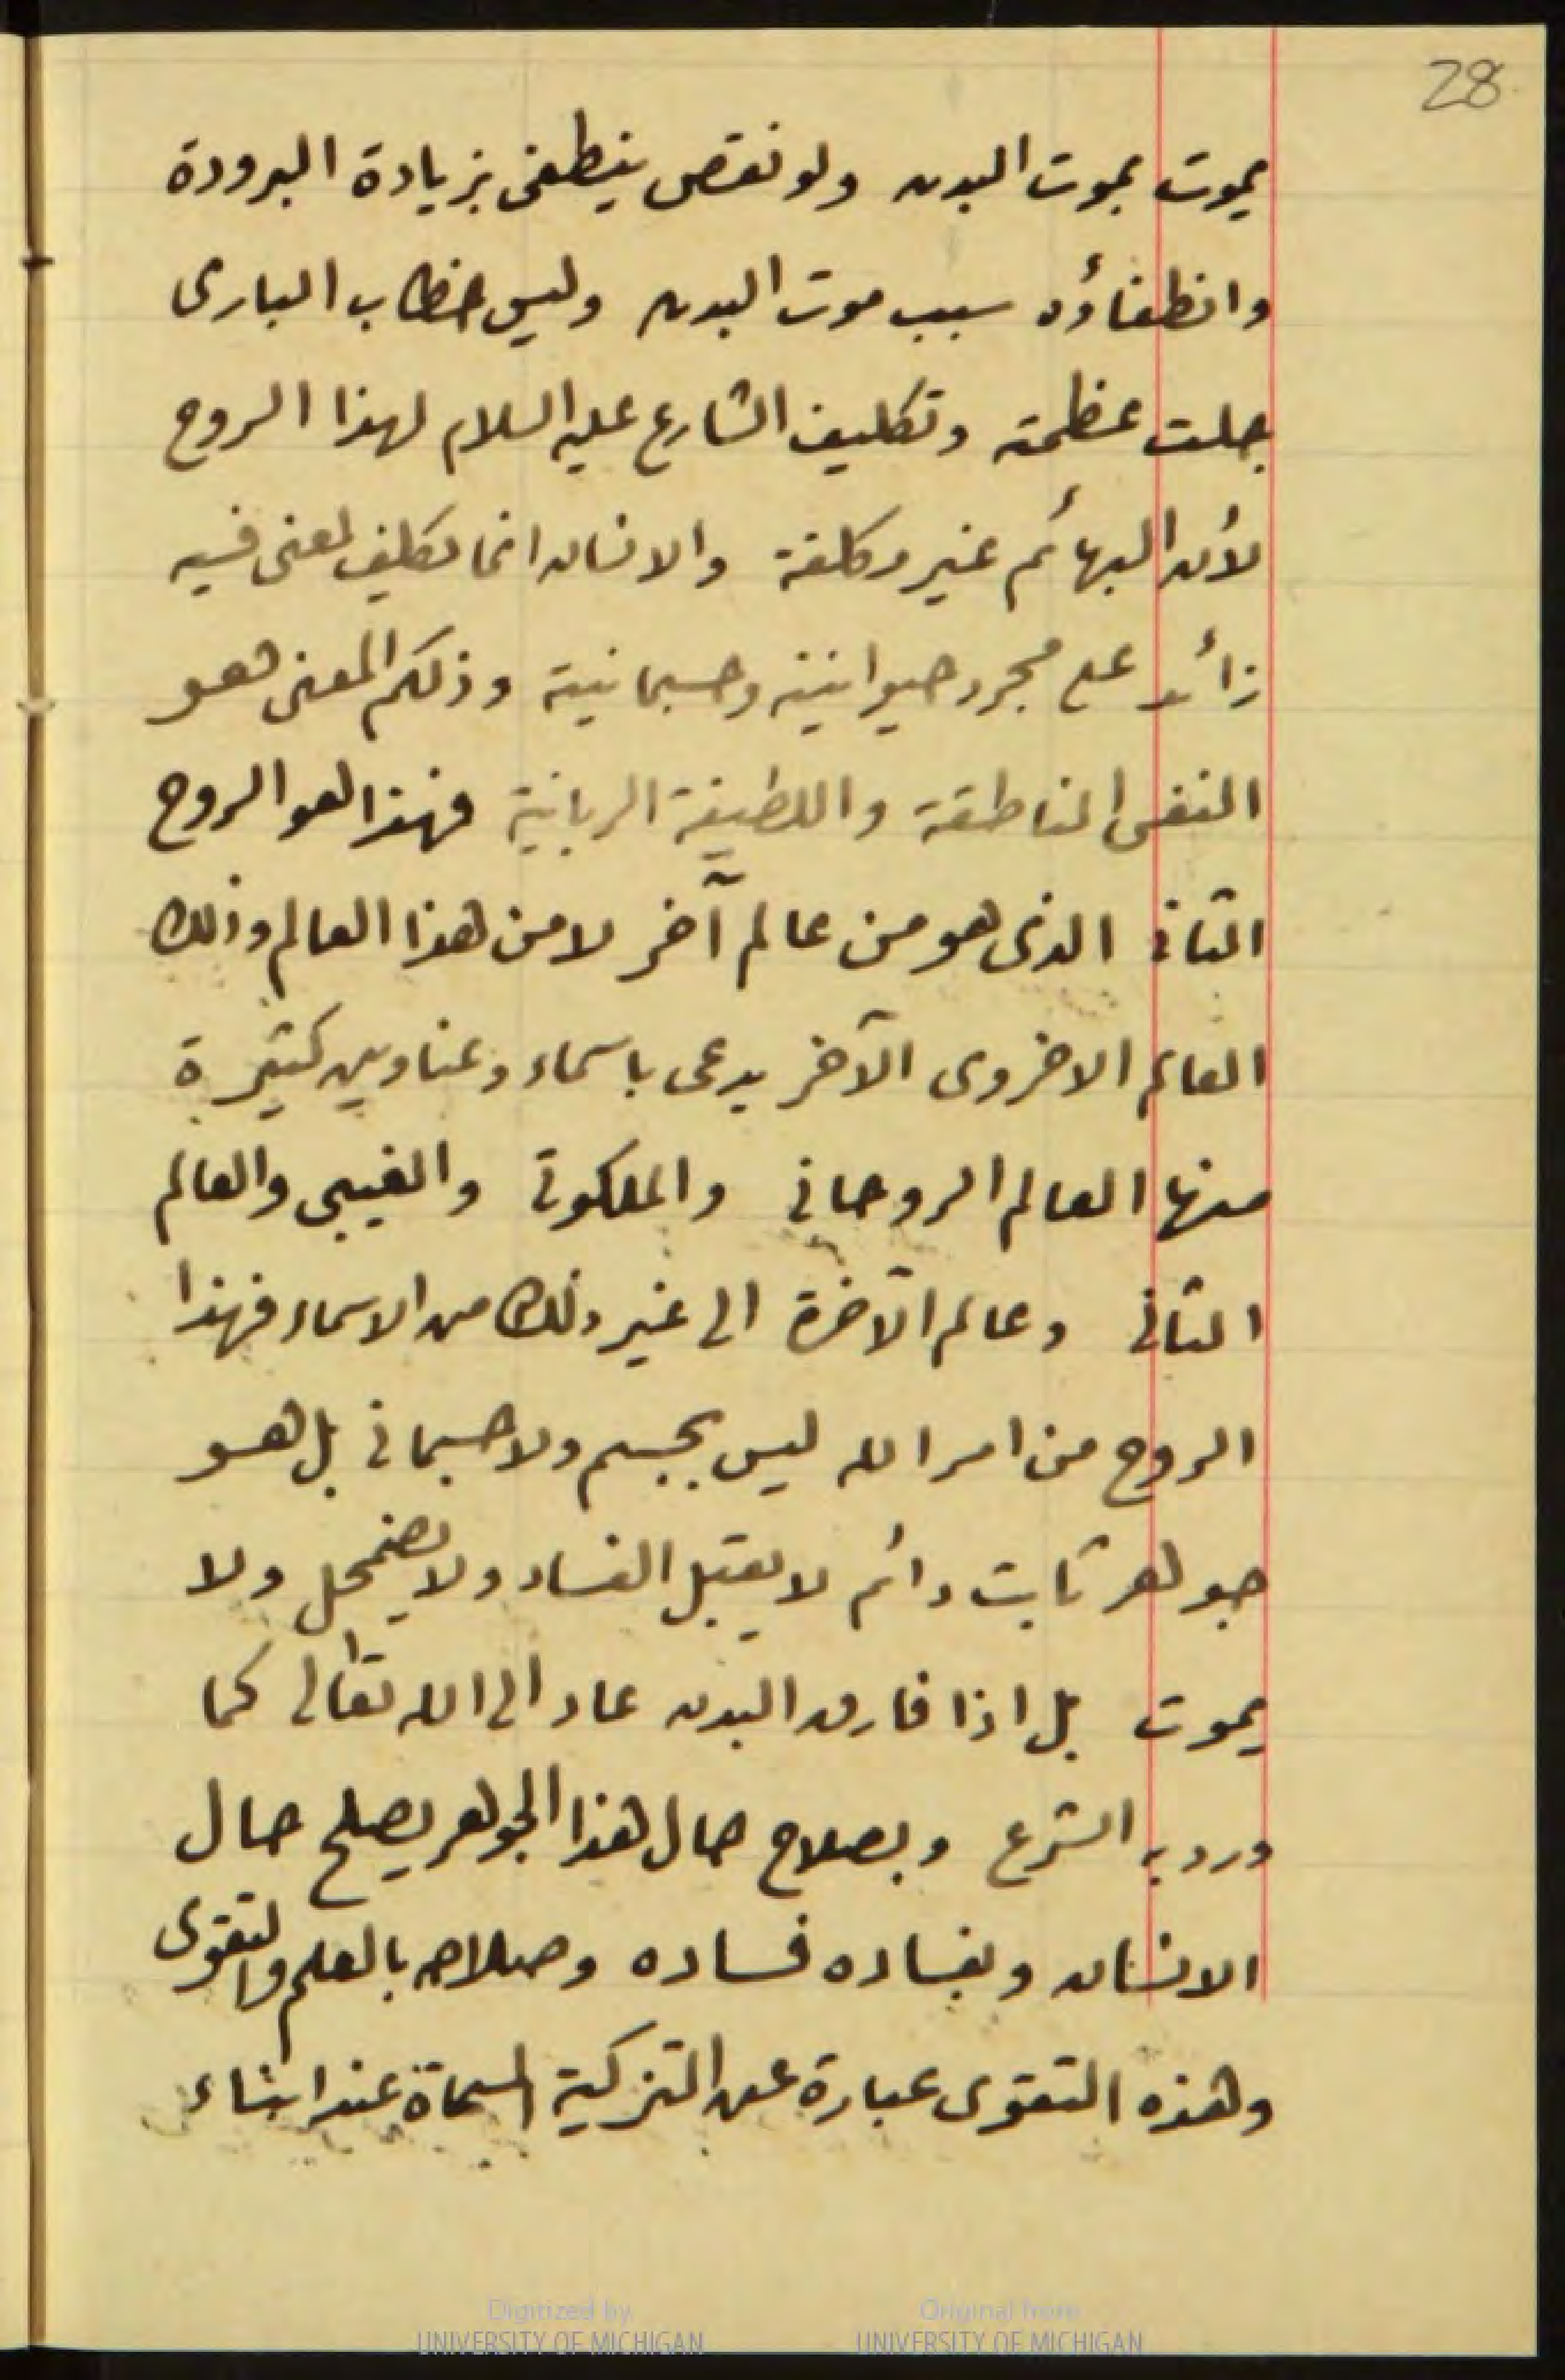 28
يموت بموت البدن ولو نقص ينطفى بزيادة البرودة
وانطفاؤه سبب موت البدن وليس خطاب البارى
جلت عظمته وتكليف الشارع عليه السلام لهذا الروح
لأن البهائم غير مكلفة والانسان انما تكلف لمعنى فيه
زائد على مجرد حيوانيته وجسمانيته وذلك المعنى هو
النفس الناطقة واللطيفة الربانية فهذا هو الروح
الثانى الذى هو من عالم آخر لا من هذا العالم وذلك
العالم الاخروى الآخر يدعى باسماء وعناوين كثيرة
منها العالم الروحانى والملكوتى والغيبى والعالم
الثانى وعالم الآخرة الى غير ذلك من الاسماء فهذا
الروح من امر الله ليس بجسم ولا جسمانى بل هو
جوهر ثابت دائم لا يقبل الفساد ولا يضمحل ولا
يموت بل اذا فارق البدن عاد الى الله تعالى كما
ورد به الشرع وبصلاح حال هذا الجوهر يصلح حال
الانسان وبفساده فساده وصلاحه بالعلم والتقوى
وهذه التقوى عبارة عن التزكية المسماة عند
Digitized by Original from
UNIVERSITY OF MICHIGAN UNIVERSITY OF MICHIGAN